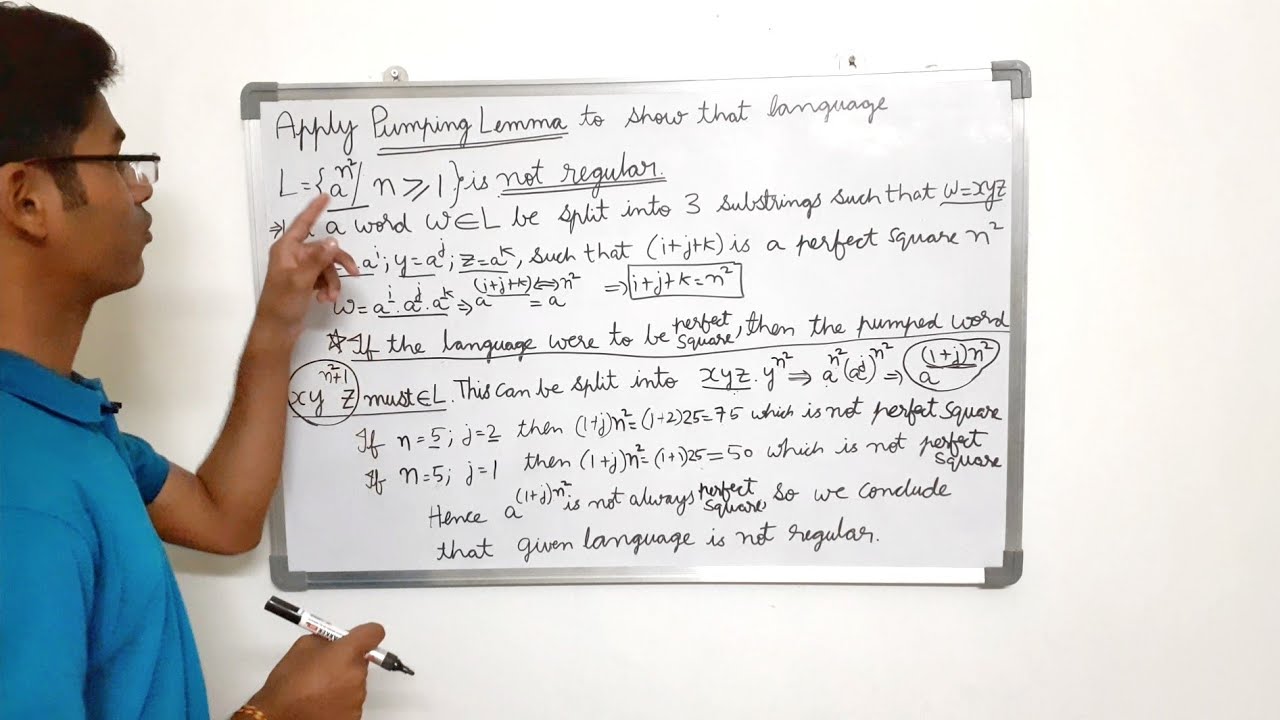 Apply Pumping Lemma to show that language
L={a^n²/ n ≥ 1} is not regular.
⇒ a word w∈L be split into 3 substrings such that w=xyz
= a^i; y=a^j; z=a^k, such that (i+j+k) is a perfect square n²
w=a^i.a^j.a^k ⇒ a^(i+j+k) ⇔ n² = a ⇒ i+j+k=n²
☆ If the language were to be perfect square, then the pumped word
xy^n²+1 z must ∈ L. This can be split into xyz.y^n² ⇒ a^n²(a^j)^n² ⇒ a^(1+j)n²
If n=5; j=2 then (1+j)n²=(1+2)25=75 which is not perfect square
If n=5; j=1 then (1+j)n²=(1+1)25=50 which is not perfect square
Hence a^(1+j)n² is not always perfect square, so we conclude
that given language is not regular.